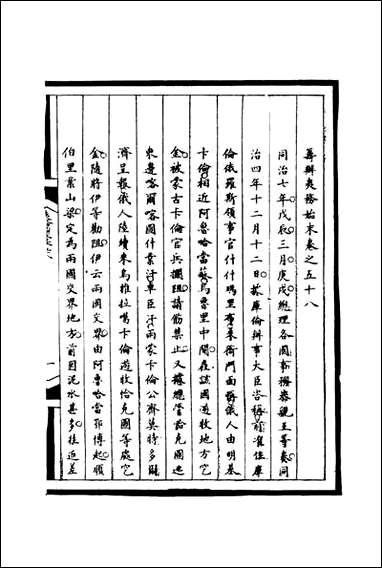 籌辦夷務始末卷之五十八
同治七年戊辰三月庚戌總理各國事務恭親王等奏同
治四年十二月十二日據庫倫辦事大臣咨稱前准住庫
倫俄羅斯領事官什什瑪里布來衙門面稱俄人由明基
卡倫相近阿魯哈當蘇烏魯里中間在該國遊牧地方它
金被蒙古卡倫官兵攔阻請飭禁止又據總管恰克圖迤
東邊喀爾喀圖什業汗車臣汗兩家卡倫公齊莫特多爾
濟呈報俄人陸續來烏雅拉噶卡倫遊牧恰克圖等處它
金隨將伊等勸阻伊云兩國交界由阿魯哈當鄂博起順
伯里業山梁定為兩國交界地方前因泥水甚多往返差